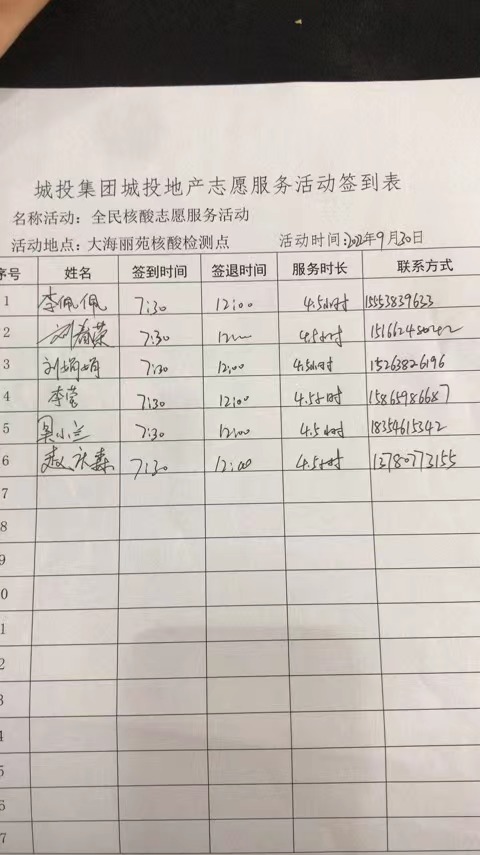 城投集团城投地产志愿服务活动签到表
名称活动：全民核酸志愿服务活动
活动地点：大海丽苑核酸检测点 活动时间：2022年9月30日
序号 姓名 签到时间 签退时间 服务时长 联系方式
1 李佩佩 7:30 12:00 4.5小时 15553839633
2 刘春荣 7:30 12:00 4.5小时
3 刘娟娟 7:30 12:00 4.5小时 15263826196
4 李莹 7:30 12:00 4.5小时 15865986687
5 吴小兰 7:30 12:00 4.5小时 18354615342
6 赵永森 7:30 12:00 4.5小时 13780773155
7
8
9
0
1
2
3
4
5
6
7